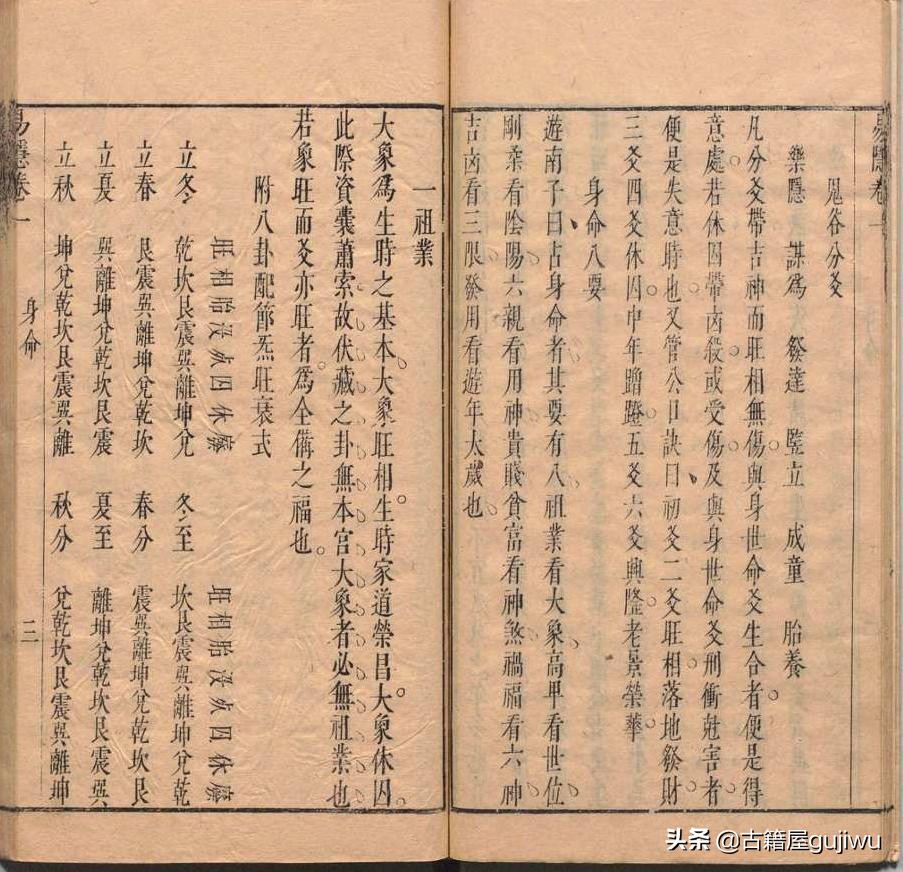 易隱卷一
鬼谷分爻
樂隱　謀為　發達　豎立　成童　胎養
凡分爻帶吉神而旺相無傷與身世命爻生合者便是得
意處若休囚帶凶殺或受傷及與身世命爻刑衝尅害者
便是失意時也又管公口訣曰初爻二爻旺相落地發財
三爻四爻休囚中年蹭蹬五爻六爻興隆老景榮華
身命八要
遊南子曰占身命者其要有八祖業看大象高卑看世位
剛柔看陰陽六親看用神貴賤貧富看神煞禍福看六神
吉凶看三限發用看遊年太歲也
一祖業
大象為生時之基本大象旺相生時家道榮昌大象休囚
此際資囊蕭索故伏藏之卦無本宮大象者必無祖業也
若象旺而爻亦旺者為全備之福也
附八卦配節炁旺衰式
旺相胎沒死囚休廢　旺相胎沒死囚休廢
立冬　乾坎艮震巽離坤兌　冬至　坎艮震巽離坤兌乾
立春　艮震巽離坤兌乾坎　春分　震巽離坤兌乾坎艮
立夏　巽離坤兌乾坎艮震　夏至　離坤兌乾坎艮震巽
立秋　坤兌乾坎艮震巽離　秋分　兌乾坎艮震巽離坤
易隱卷一　身命　二
头条 @古籍屋gujiwu